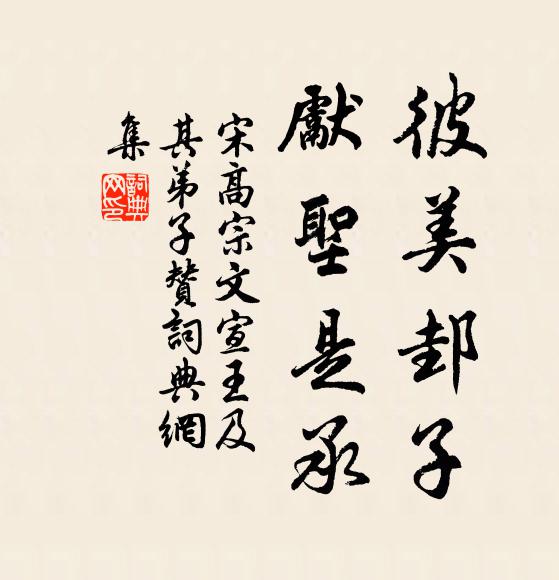 彼美邽子
獻聖是承
宋高宗文宣王及
其弟子贊詞典網
集
詞典
网印